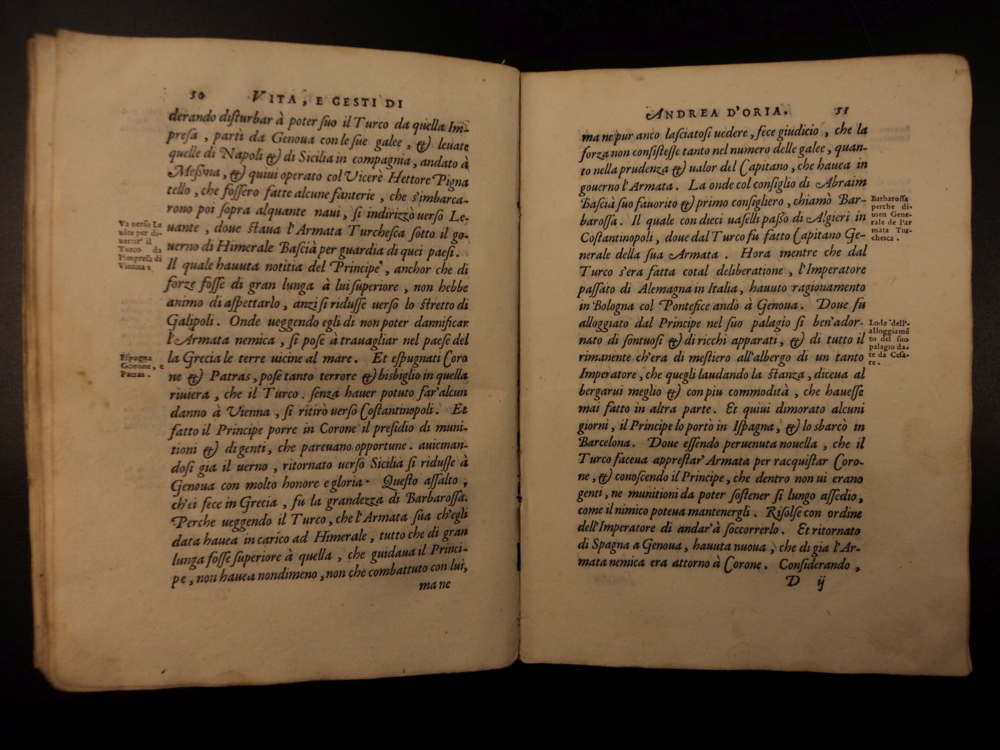 50 VITA, E GESTI DI
derando disturbar à poter suo il Turco da quella Im-
presa, partì da Genoua con le sue galee, & leuate
quelle di Napoli & di Sicilia in compagnia, andato à
Messina, & quiui operato col Vicerè Hettore Pigna
tello, che fossero fatte alcune fanterie, che s'imbarca-
rono poi sopra alquante naui, si indirizzò uerso Le-
uante, doue staua l'Armata Turchesca sotto il go-
uerno di Himerale Bascià per guardia di quei paesi.
Il quale hauuta notitia del Principe, anchor che di
forze fosse di gran lunga à lui superiore, non hebbe
animo di aspettarlo, anzi si ridusse uerso lo stretto di
Galipoli. Onde ueggendo egli di non poter damnificar
l'Armata nemica, si pose à trauagliar nel paese del
la Grecia le terre uicine al mare. Et espugnati Coro
ne & Patras, pose tanto terrore & bisbiglio in quella
riuiera, che il Turco. senza hauer potuto far'alcun
danno à Vienna, si ritirò uerso Costantinopoli. Et
fatto il Principe porre in Corone il presidio di muni-
tioni & di genti, che pareuano opportune. auicinan-
dosi gia il uerno, ritornato uerso Sicilia si ridusse à
Genoua con molto honore e gloria. Questo assalto,
ch'ei fece in Grecia, fu la grandezza di Barbarossa.
Perche ueggendo il Turco, che l'Armata sua ch'egli
data hauea in carico ad Himerale, tutto che di gran
lunga fosse superiore à quella, che guidaua il Princi-
pe, non hauea nondimeno, non che combattuto con lui,
ma ne
Va uerso Le
uāte per di-
uertir' il
Turco da
l'impresa di
Vienna.
Espugna
Corone, e
Patras.
ANDREA D'ORIA. 51
ma ne pur anco lasciatosi uedere, fece giudicio, che la
forza non consistesse tanto nel numero delle galee, quan-
to nella prudenza & ualor del Capitano, che hauea in
gouerno l'Armata. La onde col consiglio di Abraim
Bascià suo fauorito & primo consigliero, chiamò Bar-
barossa. Il quale con dieci uaselli passò di Algieri in
Costantinopoli, doue dal Turco fu fatto Capitano Ge-
nerale della sua Armata. Hora mentre che dal
Turco s'era fatta cotal deliberatione, l'Imperatore
passato di Alemagna in Italia, hauuto ragionamento
in Bologna col Pontefice andò à Genoua. Doue fu
alloggiato dal Principe nel suo palagio si ben'ador-
nato di sontuosi & di ricchi apparati, & di tutto il
rimanente ch'era di mestiero all'albergo di un tanto
Imperatore, che quegli laudando la stanza, diceua al
bergarui meglio & con piu commodità, che hauesse
mai fatto in altra parte. Et quiui dimorato alcuni
giorni, il Principe lo porto in Ispagna, & lo sbarcò in
Barcelona. Doue essendo peruenuta nouella, che il
Turco faceua apprestar'Armata per racquistar Coro-
ne, & conoscendo il Principe, che dentro non ui erano
genti, ne munitioni da poter sostener si lungo assedio,
come il nimico poteua mantenergli. Risolse con ordine
dell'Imperatore di andar'à soccorrerlo. Et ritornato
di Spagna a Genoua, hauuta nuoua, che di gia l'Ar-
mata nemica era attorno à Corone. Considerando,
D ij
Barbarossa
perche di-
uien Gene-
rale de l'ar
mata Tur-
chesca.
Lode dell'-
alloggiamē
to del suo
palagio da-
te da Cesa-
re.